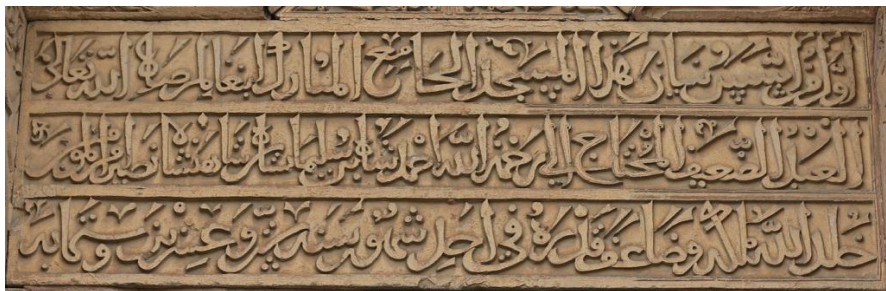 بنيان هذا المسجد الجامع المبارك ابتغا لمرضاة الله تعالى
العبد الضعيف المحتاج الى رحمة الله احمدشاه بن سليمان شاه بن شاهنشاه نصير امير
خلد الله ملكه وضاعف قدره في احد شهور سنة ست وعشرين وستمايه